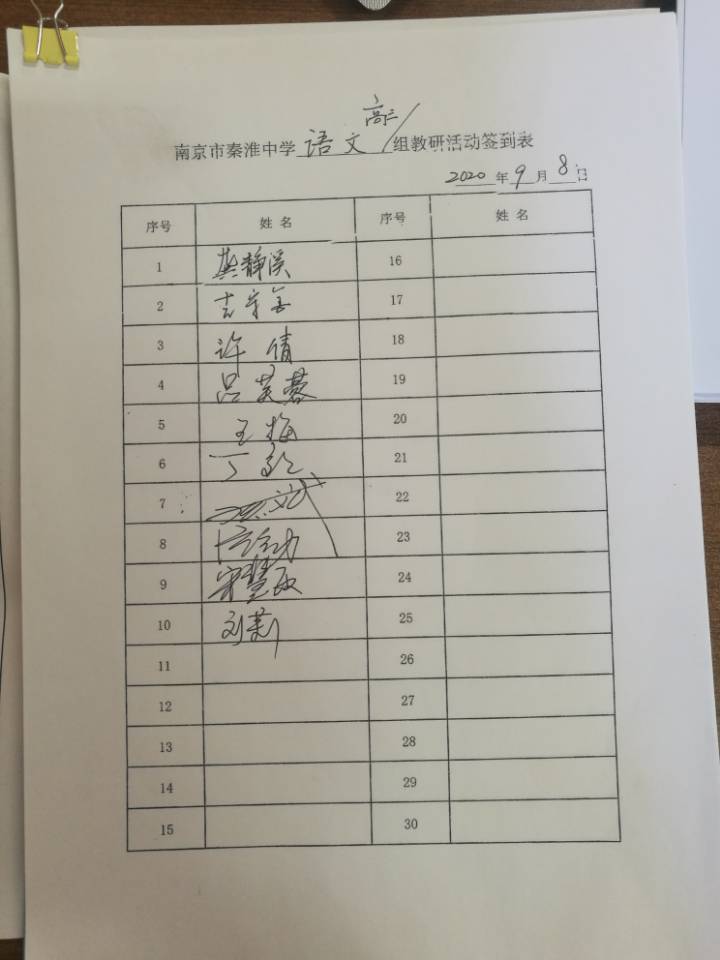 高三
南京市秦淮中学 语文 组教研活动签到表
2020年9月8日
序号 姓名 序号 姓名
1 龚静溪 16
2 17
3 许倩 18
4 吕芙蓉 19
5 王梅 20
6 丁 21
7 22
8 23
9 宋慧敏 24
10 刘莉 25
11 26
12 27
13 28
14 29
15 30